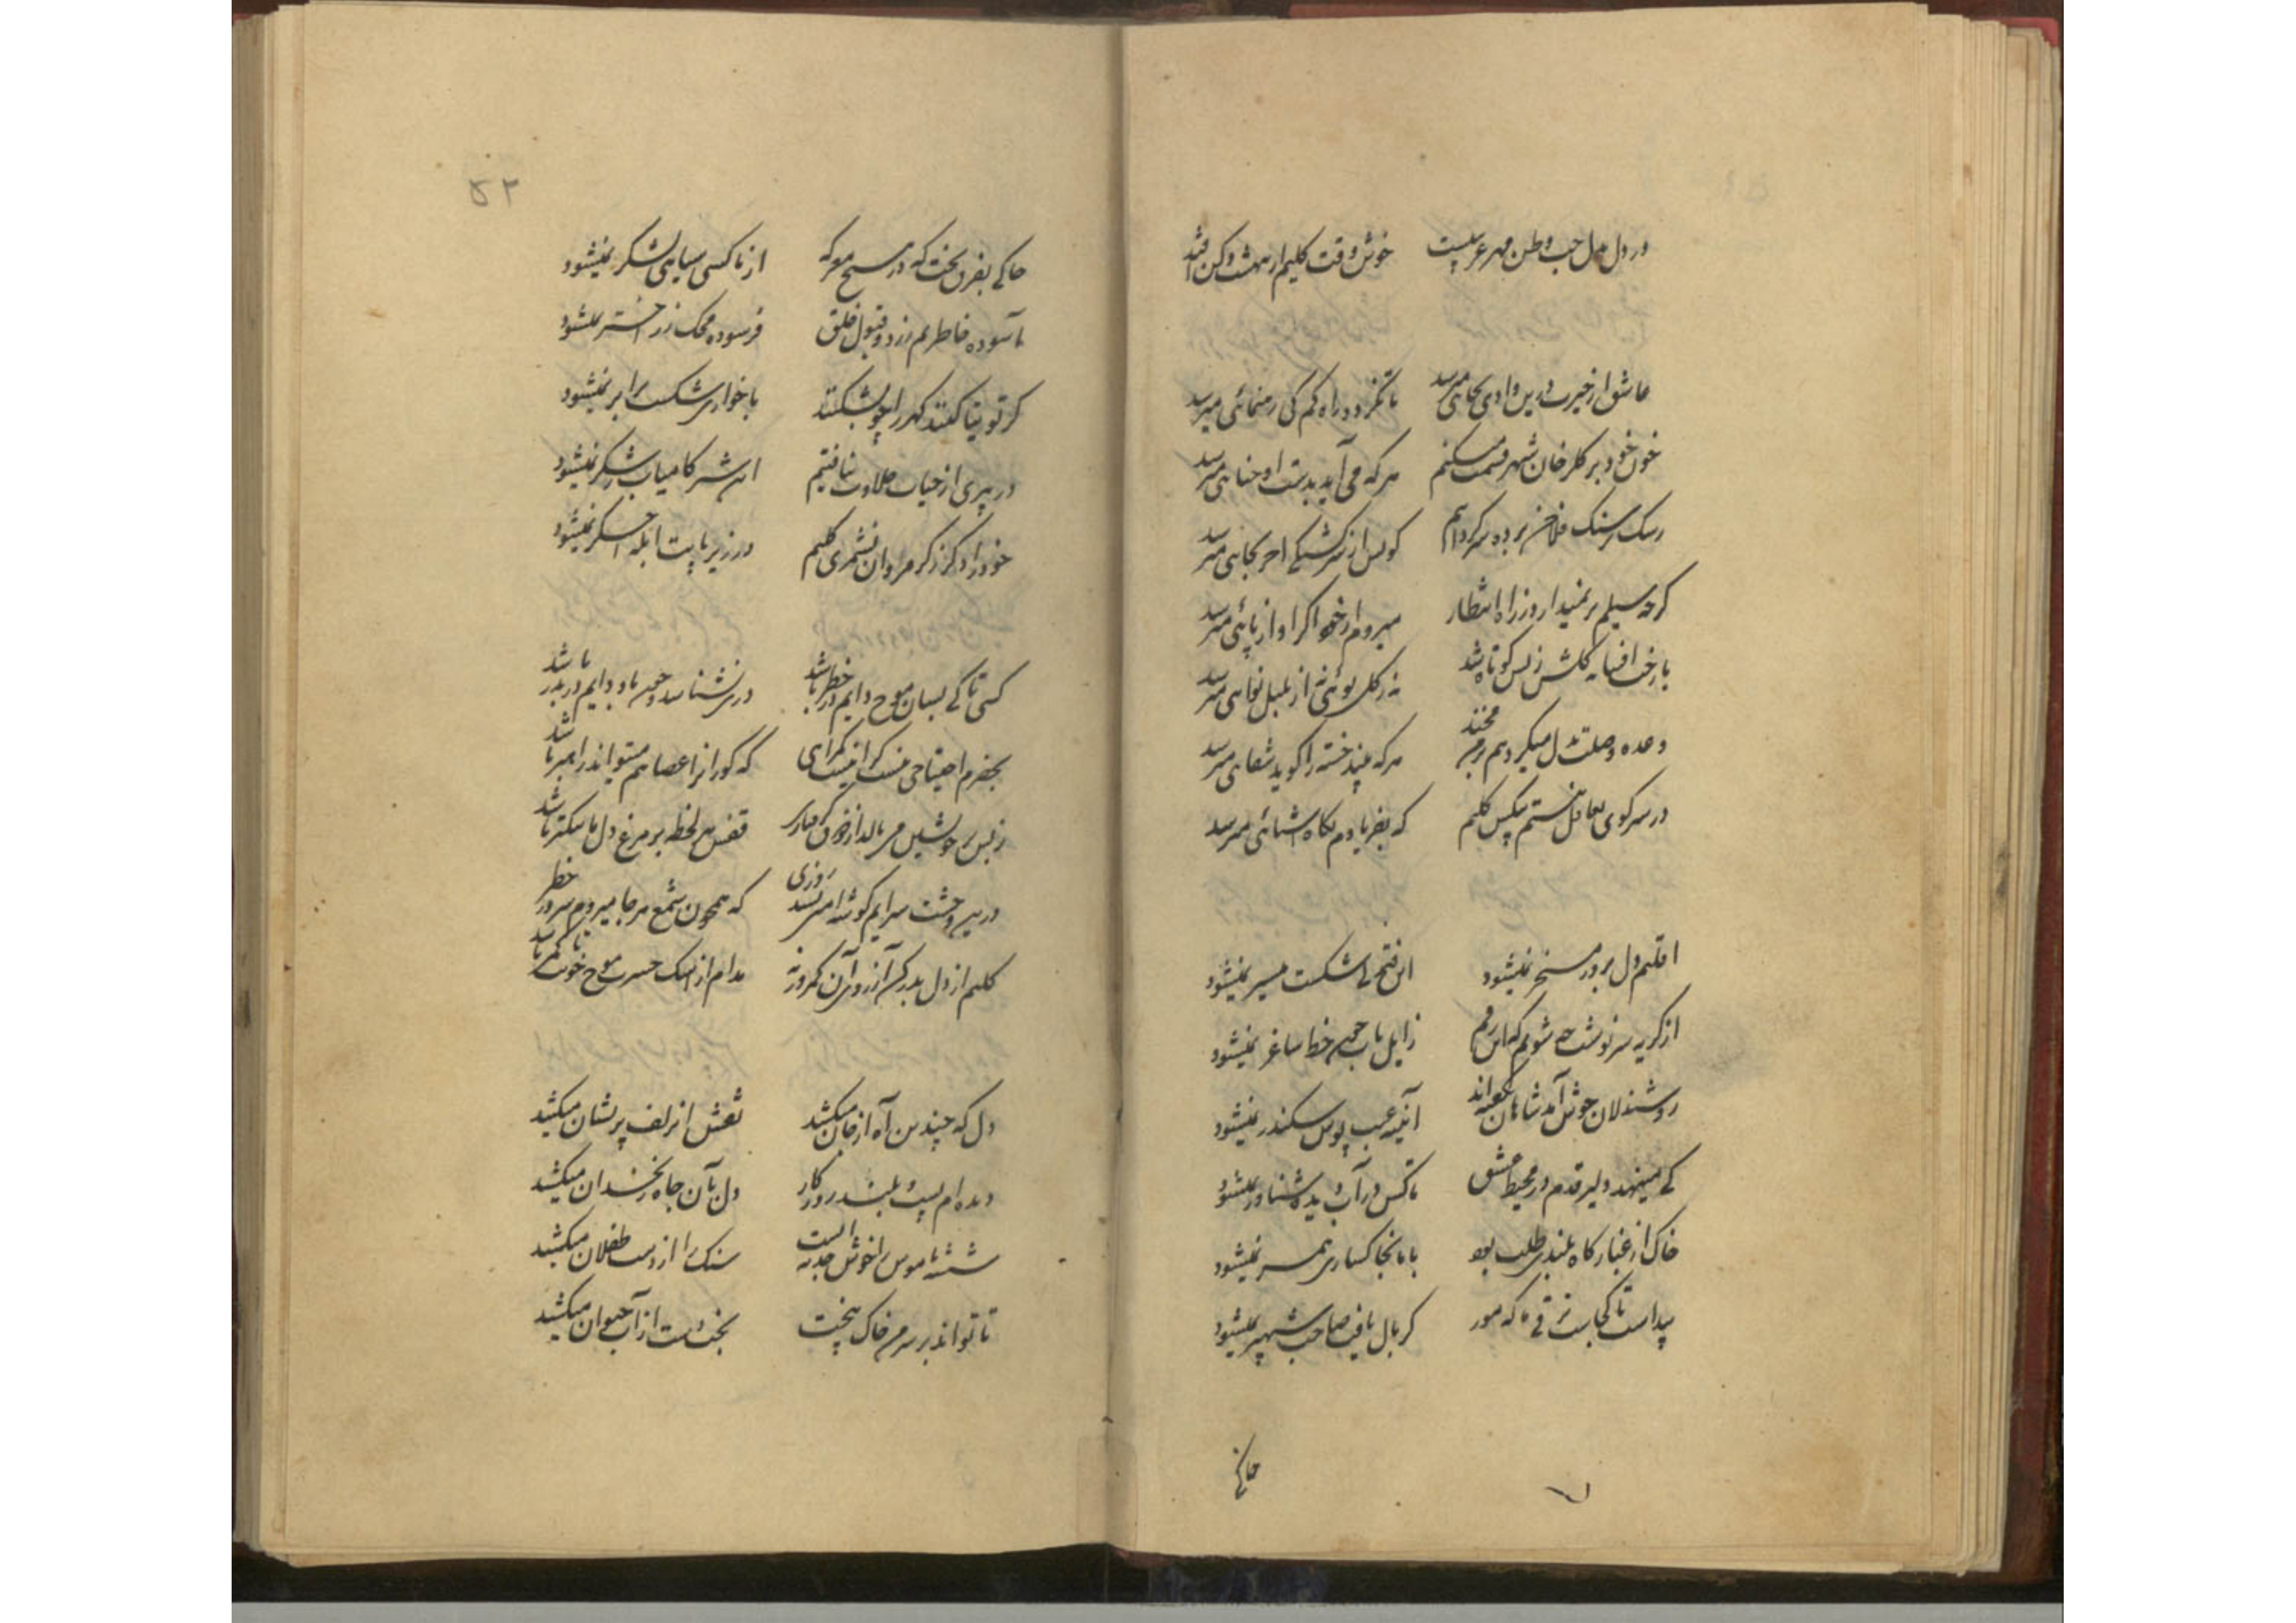 در دل حب وطن مهر غریبیست خوش وقت کلیم از بهشت وکن افتد
عاشق از خیرت درین وادی بجائی میرسد تا نگردد راه گم کی رهنمائی میرسد
خون خود بر گلرخان شهر قسمت میکنم هر که می آید بدست او حنائی میرسد
رشک بر سنگ فلاخن برده سرگردانیم کو پس از سرگشتگی آخر بجائی میرسد
گرچه سیلم بر نمیدارد ز راه انتظار میروم از خود اگر آواز پائی میرسد
بارخت افسانه گلشن ز بس کوتاه شد نه ز گل بوئی نه از بلبل نوائی میرسد
وعده وصلت بدل میگردهم بر من مخند هر که بیند خسته را گوید شفائی میرسد
در سر کوی تغافل هستم بیکس کلیم که بفریادم نگاه آشنائی میرسد
اقلیم دل بزور مسخر نمیشود این فتح بی شکست میسر نمیشود
از گریه سرنوشت چه شویم که این رقم زایل بآب چون خط ساغر نمیشود
روشندلان خوش آمد شاهان نگفته اند آئینه عیب پوش سکندر نمیشود
کی مینهد دلیر قدم در محیط عشق تا کس در آب دیده شناور نمیشود
خاک از غبار گاه بلندی طلب بود با ما بخاکساری همسر نمیشود
پیداست تا کجاست ترقی که مور گر بال یافت صاحب شهپر نمیشود
خاکی
۵۲
خاکی بفرق بخت که در هیچ معرکه از ناکسی سیاهی لشکر نمیشود
ما آسوده خاطریم ز رد و قبول خلق فرسوده محک زر اختر نمیشود
گر توتیا کنند گهر را چو بشکنند با خواری شکست برابر نمیشود
در پیری از حیات حلاوت نیافتیم این شیر کامیاب ز شکر نمیشود
خود را دگر ز گرمروان نشمری کلیم در زیر پایت آبله اخگر نمیشود
کسی تا کی بسان موج دایم در خطر باشد دری نشناسد و چون باد دایم دربدر باشد
بخضرم احتیاجی نیست گر این است گمراهی که کور از را عصا هم میتواند راهبر باشد
ز بس بر خویشتن می بالد از ذوق گرفتاری قفس هر لحظه بر مرغ دل ما تنگتر باشد
درین وحشت سرایم گوشه امنی نشد روزی که همچون شمع هر جا میروم سر در خطر باشد
کلیم از دل بدر کن آرزوی آن کمر ورنه مدام از اشک حسرت موج خونت تا کمر باشد
دل که چندین آه از جان میکشد نقش از زلف پریشان میکشد
دیده ام پست و بلند روزگار دل بآن چاه زنخدان میکشد
شیشه ناموس را خوش جذبه ایست سنگ را از دست طفلان میکشد
تا تواند بر سر من خاک بیخت بخت دست از آب حیوان میکشد